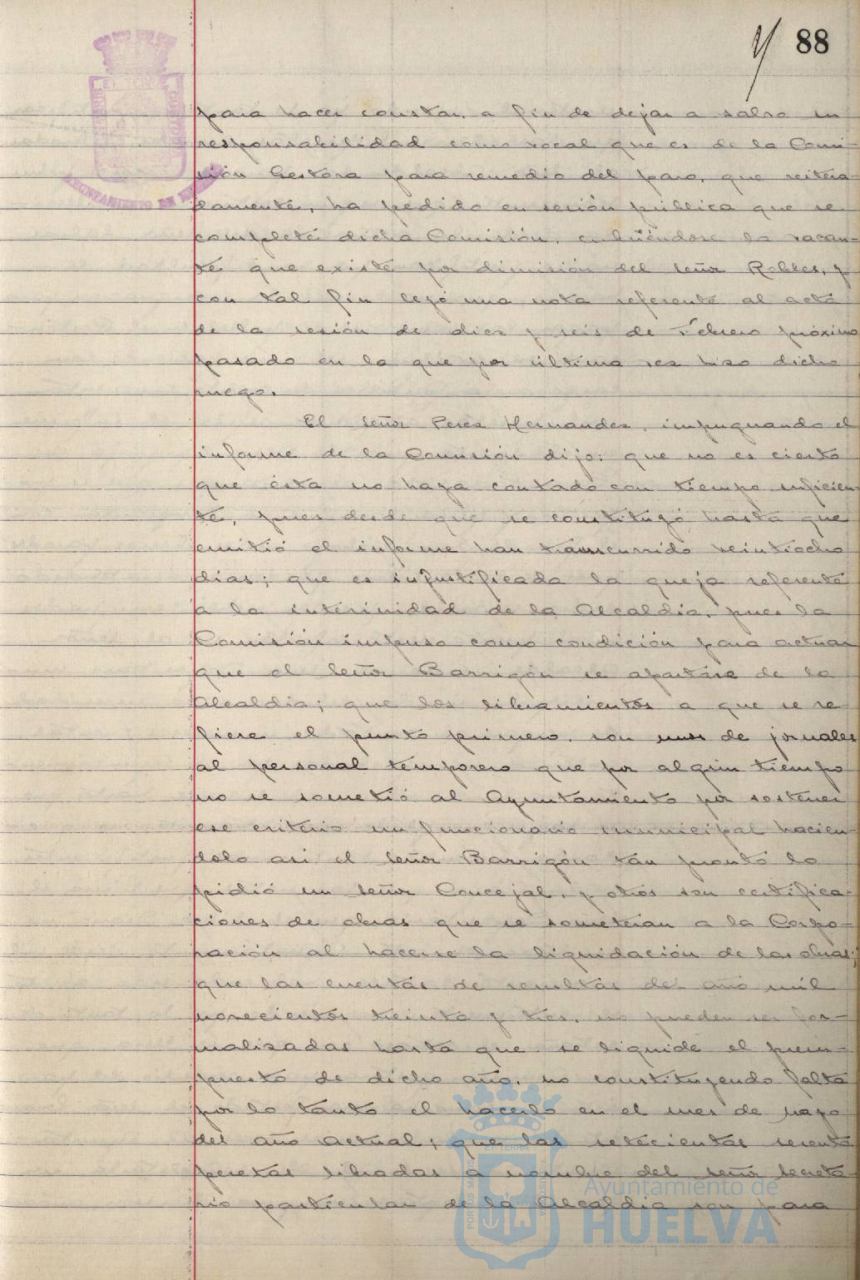 88
para hacer constar, a fin de dejar a salvo su
responsabilidad como vocal que es de la Comi-
sión Gestora para remedio del paro, que reitera-
damente, ha pedido en sesión pública que se
complete dicha Comisión, cubriéndose la vacan-
te que existe por dimisión del señor Robles, y
con tal fin leyó una nota referente al acta
de la sesión de diez y seis de Febrero próximo
pasado en la que por última vez hizo dicho
ruego.
El señor Perez Hernandez, impugnando el
informe de la Comisión dijo: que no es cierto
que ésta no haya contado con tiempo suficien-
te, pues desde que se constituyó hasta que
emitió el informe han transcurrido veintiocho
dias; que es injustificada la queja referente
a la interinidad de la Alcaldía, pues la
Comisión impuso como condición para actuar
que el señor Barrigón se apartara de la
Alcaldía; que los libramientos a que se re
fiere el punto primero, son unos de jornales
al personal temporero que por algún tiempo
no se sometió al Ayuntamiento por sostener
ese criterio un funcionario municipal hacien-
dolo asi el señor Barrigón tan pronto lo
pidió un señor Concejal, y otros son certifica-
ciones de obras que se someterian a la Corpo-
ración al hacerse la liquidación de las obras;
que las cuentas de resultas del año mil
novecientos treinta y tres, no pueden ser for-
malizadas hasta que se liquide el presu-
puesto de dicho año, no constituyendo falta
por lo tanto el hacerlo en el mes de mayo
del año actual; que las setecientas sesenta
pesetas libradas a nombre del señor Secreta-
rio particular de la Alcaldía son para
AYUNTAMIENTO DE HUELVA
Ayuntamiento de
HUELVA